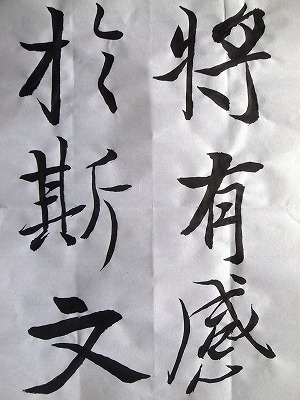 将有感
於斯文